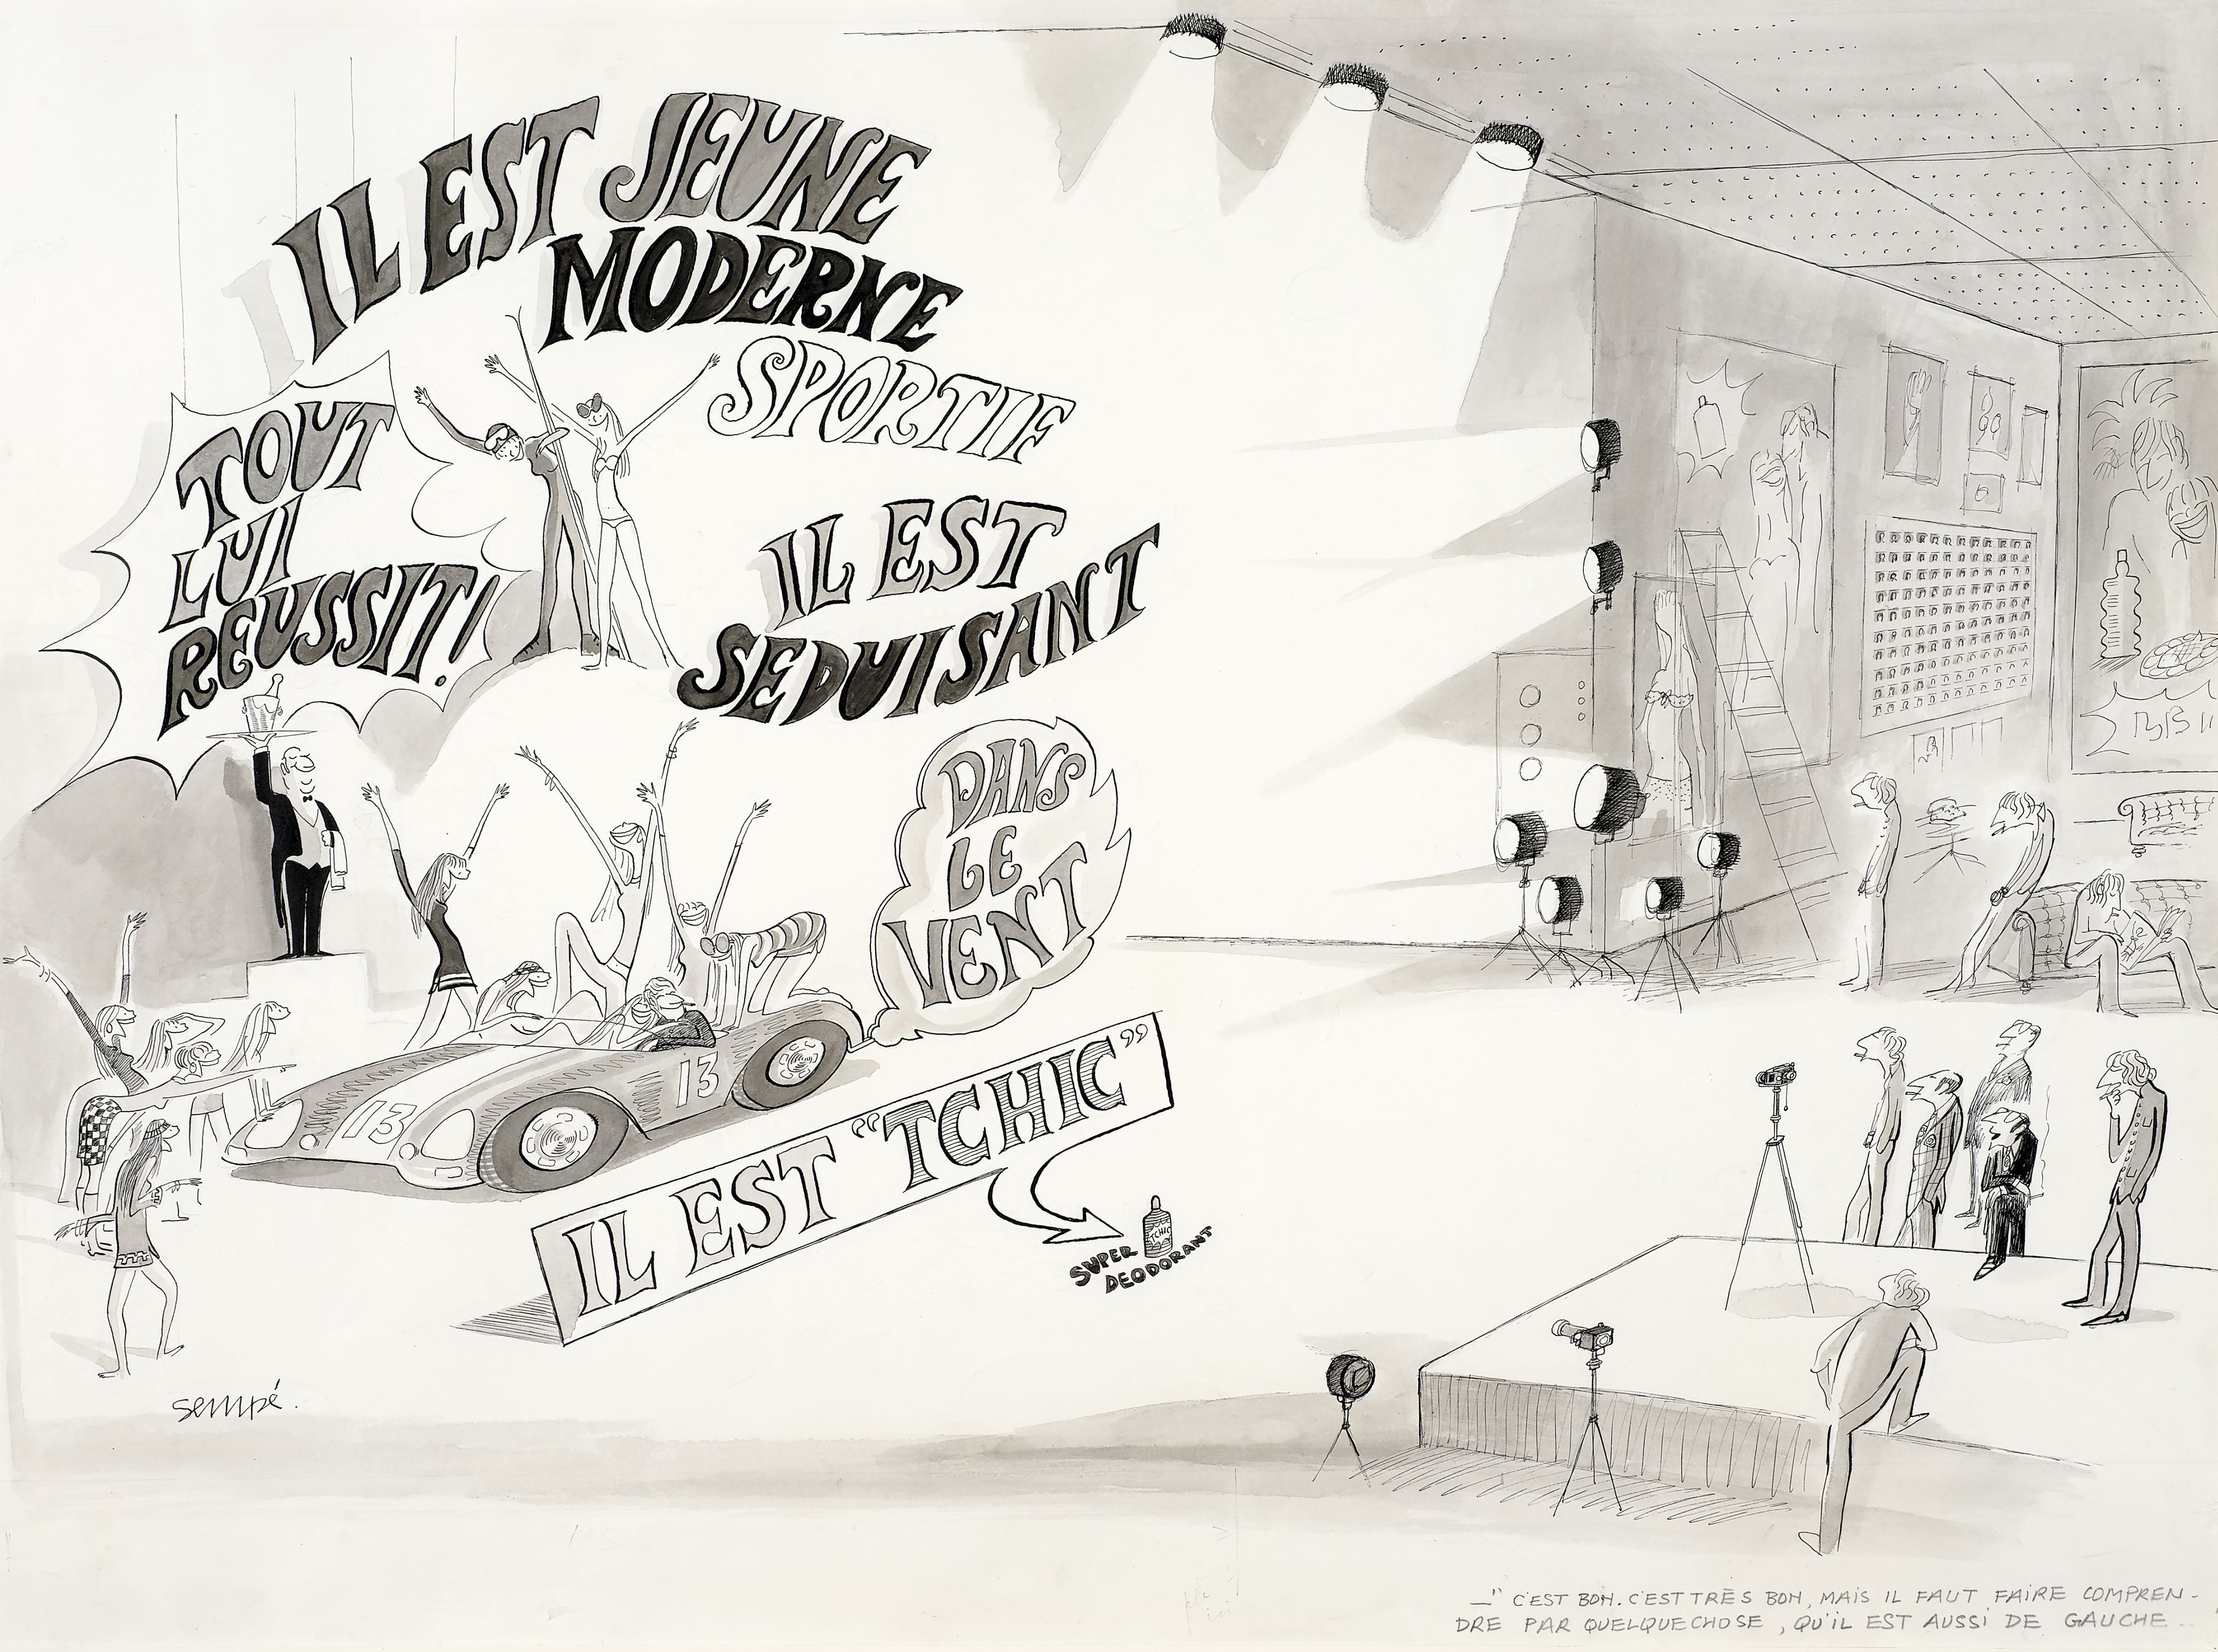 IL EST JEUNE
MODERNE
SPORTIF
TOUT
LUI
REUSSIT!
IL EST
SEDUISANT
DANS
LE
VENT
13
13
IL EST "TCHIC"
TCHIC
SUPER
DEODORANT
sempé.
—" C'EST BON. C'EST TRÈS BON, MAIS IL FAUT FAIRE COMPREN-
DRE PAR QUELQUECHOSE, QU'IL EST AUSSI DE GAUCHE